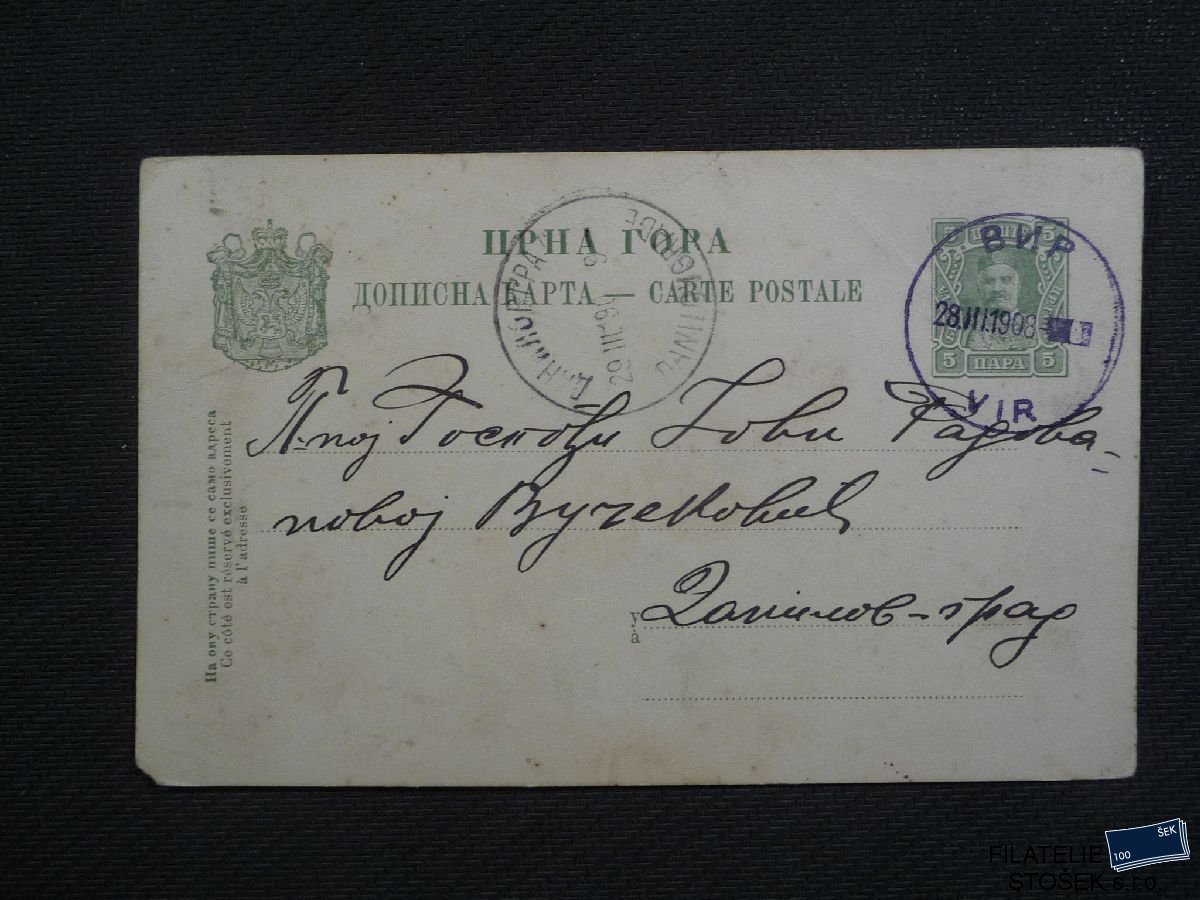 ЦРНА ГОРА
ДОПИСНА КАРТА — CARTE POSTALE
ВИР
28.III.1908
VIR
5 ПАРА 5
29 III 19
На ову страну пише се само адреса
Ce côté est réservé exclusivement
à l'adresse
Госпођи Јови Радова-
новој Вучековић
у
à
Данилов-град
100 ŠEK
FILATELIE
STOŠEK s.r.o.